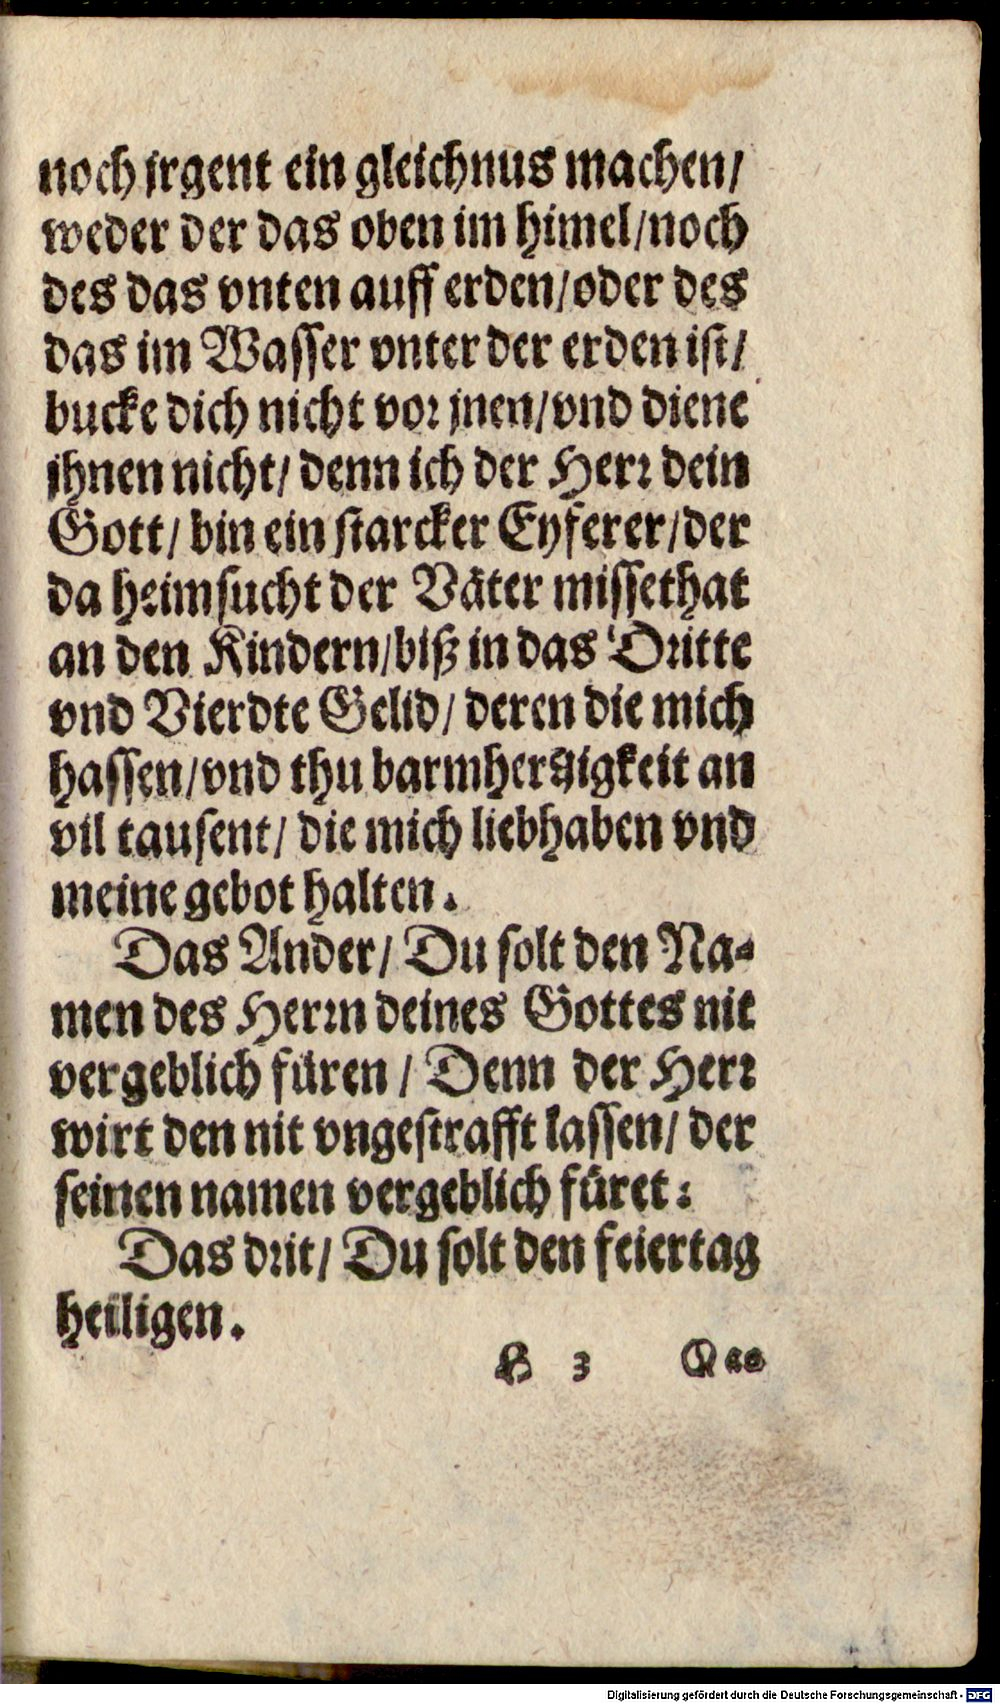 noch jrgent ein gleichnus machen/
weder der das oben im himel/noch
des das vnten auff erden/oder des
das im Wasser vnter der erden ist/
bucke dich nicht vor jnen/vnd diene
jhnen nicht/ denn ich der Herr dein
Gott/ bin ein starcker Eyferer/der
da heimsucht der Väter missethat
an den Kindern/biß in das Dritte
vnd Vierdte Gelid/ deren die mich
hassen/vnd thu barmhertzigkeit an
vil tausent/ die mich liebhaben vnd
meine gebot halten.
Das Ander/ Du solt den Na-
men des Herrn deines Gottes nit
vergeblich füren / Denn der Herr
wirt den nit vngestrafft lassen/ der
seinen namen vergeblich füret:
Das drit/ Du solt den feiertag
heiligen.
3
Digitalisierung gefördert durch die Deutsche Forschungsgemeinschaft - DFG